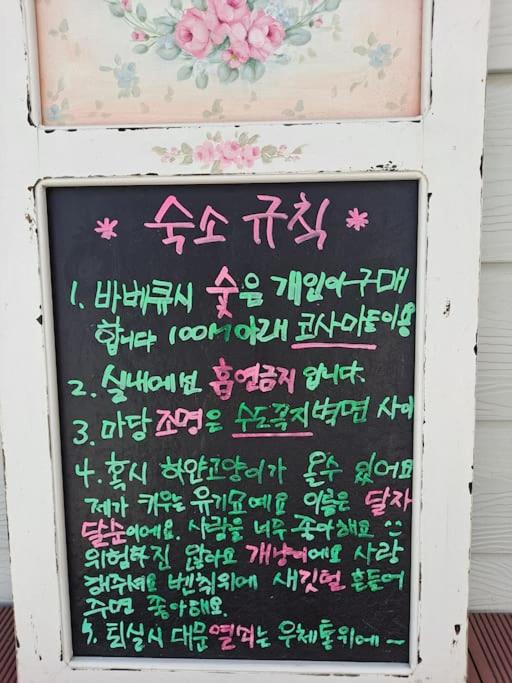 * 숙소 규칙 *
1. 바베큐시 숯은 개인이 구매
합니다 100M 아래 코사마트이용
2. 실내에선 흡연금지 입니다.
3. 마당조명은 수도꼭지벽면 사이
4. 혹시 하얀고양이가 올수 있어요
제가 키우는 유기묘예요 이름은 달자
달순이에요. 사람을 너무 좋아해요
위험하진 않아요 개냥이에요 사랑
해주세요 벤치위에 새깃털 흔들어
주면 좋아해요.
5. 퇴실시 대문열쇠는 우체통위에 ~